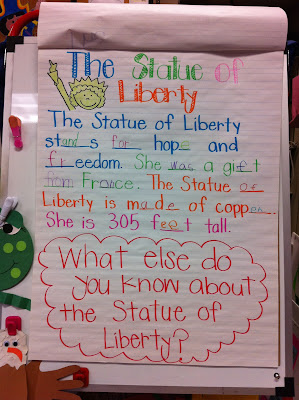 The Statue of
Liberty
The Statue of Liberty
stands for hope and
freedom. She was a gift
from France. The Statue of
Liberty is made of copper.
She is 305 feet tall.
What else do
you know about
the Statue of
Liberty?